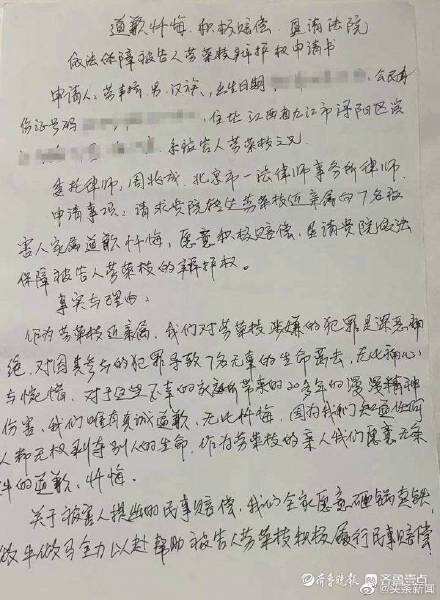 道歉忏悔、积极赔偿、恳请法院
依法保障被告人劳荣枝辩护权申请书
申请人:劳声桥,男,汉族,出生日期 ,公民身
份证号码 ,住址:江西省九江市浔阳区滨
,系被告人劳荣枝之兄
委托律师:周兆成,北京市一法律师事务所律师。
申请事项:请求贵院转达劳荣枝近亲属向7名被
害人家属道歉忏悔,愿意积极赔偿,恳请贵院依法
保障被告人劳荣枝的辩护权。
事实与理由:
作为劳荣枝近亲属,我们对劳荣枝涉嫌的犯罪是深恶痛
绝,对因其参与的犯罪导致7名无辜的生命离去,无比痛心
与惋惜,对于这些不幸的家庭所带来的20多年的漫漫精神
伤害,我们唯有真诚道歉,无比忏悔,因为我们知道任何
人都无权剥夺别人的生命,作为劳荣枝的亲人我们愿意无条
件的道歉、忏悔。
关于被害人提出的民事赔偿,我们全家愿意砸锅卖铁,
做牛做马全力以赴帮助被告人劳荣枝积极履行民事赔偿
齐鲁晚报 齐鲁壹点
@头条新闻